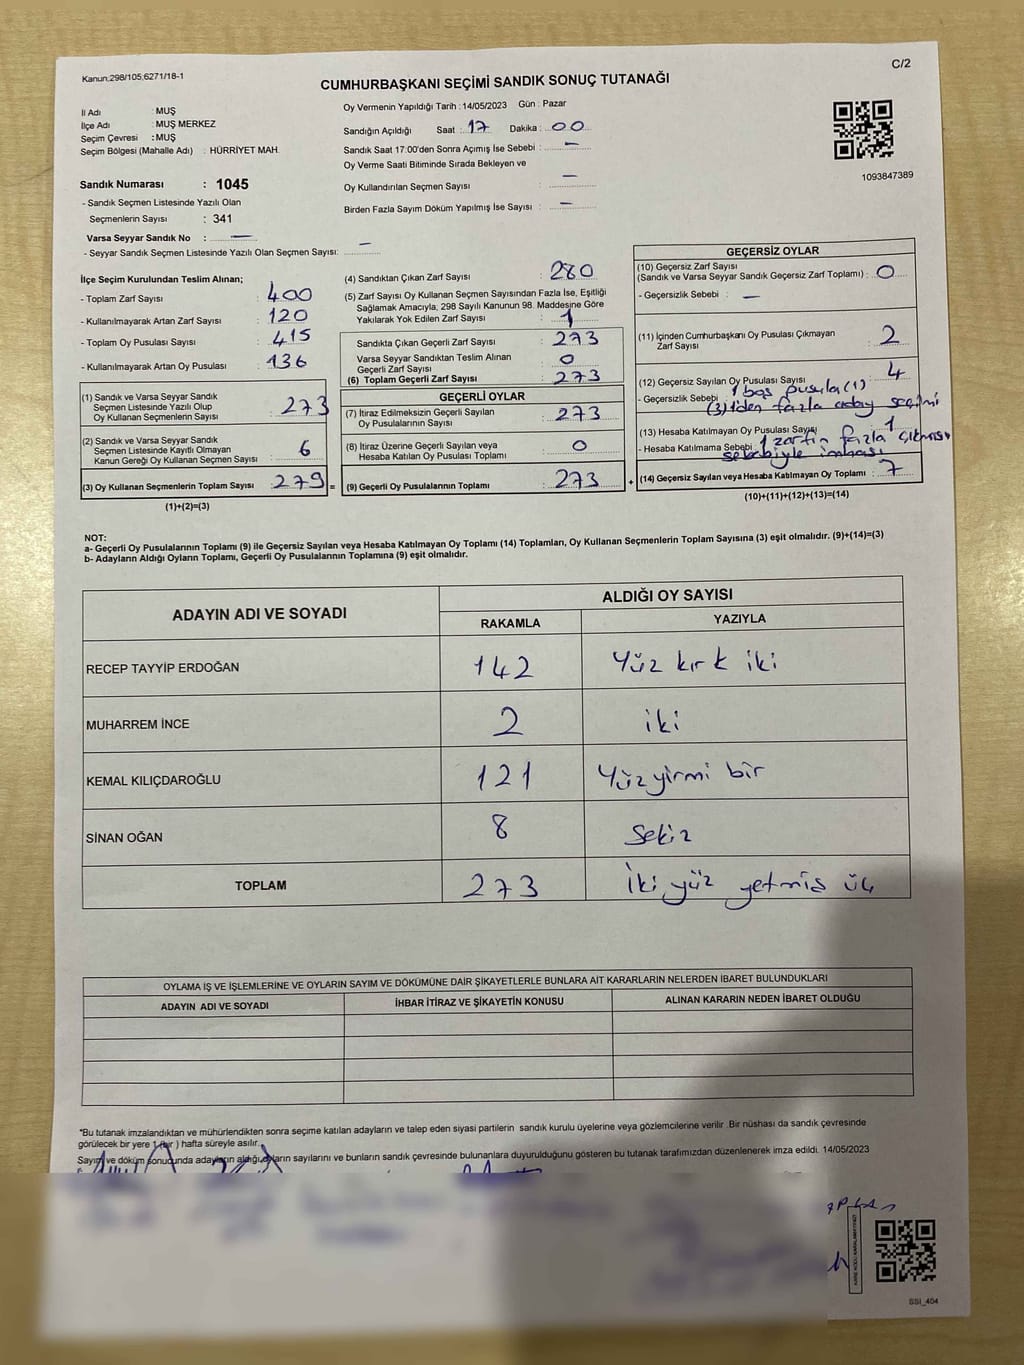 Kanun:298/105;6271/18-1
C/2
CUMHURBAŞKANI SEÇİMİ SANDIK SONUÇ TUTANAĞI
İl Adı : MUŞ
İlçe Adı : MUŞ MERKEZ
Seçim Çevresi : MUŞ
Seçim Bölgesi (Mahalle Adı) : HÜRRİYET MAH.
Oy Vermenin Yapıldığı Tarih : 14/05/2023 Gün : Pazar
Sandığın Açıldığı Saat : 17 Dakika : 00
Sandık Saat 17:00'den Sonra Açımış İse Sebebi : —
Oy Verme Saati Bitiminde Sırada Bekleyen ve
Oy Kullandırılan Seçmen Sayısı : —
Birden Fazla Sayım Döküm Yapılmış İse Sayısı : —
1093847389
Sandık Numarası : 1045
- Sandık Seçmen Listesinde Yazılı Olan
Seçmenlerin Sayısı : 341
Varsa Seyyar Sandık No : —
- Seyyar Sandık Seçmen Listesinde Yazılı Olan Seçmen Sayısı: —
İlçe Seçim Kurulundan Teslim Alınan;
- Toplam Zarf Sayısı : 400
- Kullanılmayarak Artan Zarf Sayısı : 120
- Toplam Oy Pusulası Sayısı : 415
- Kullanılmayarak Artan Oy Pusulası : 136
(1) Sandık ve Varsa Seyyar Sandık
Seçmen Listesinde Yazılı Olup
Oy Kullanan Seçmenlerin Sayısı : 273
(2) Sandık ve Varsa Seyyar Sandık
Seçmen Listesinde Kayıtlı Olmayan
Kanun Gereği Oy Kullanan Seçmen Sayısı : 6
(3) Oy Kullanan Seçmenlerin Toplam Sayısı : 279 =
(1)+(2)=(3)
(4) Sandıktan Çıkan Zarf Sayısı : 280
(5) Zarf Sayısı Oy Kullanan Seçmen Sayısından Fazla İse, Eşitliği
Sağlamak Amacıyla; 298 Sayılı Kanunun 98. Maddesine Göre
Yakılarak Yok Edilen Zarf Sayısı : 1
Sandıkta Çıkan Geçerli Zarf Sayısı : 273
Varsa Seyyar Sandıktan Teslim Alınan
Geçerli Zarf Sayısı : 0
(6) Toplam Geçerli Zarf Sayısı : 273
GEÇERLİ OYLAR
(7) İtiraz Edilmeksizin Geçerli Sayılan
Oy Pusulalarının Sayısı : 273
(8) İtiraz Üzerine Geçerli Sayılan veya
Hesaba Katılan Oy Pusulası Toplamı : 0
(9) Geçerli Oy Pusulalarının Toplamı : 273 +
GEÇERSİZ OYLAR
(10) Geçersiz Zarf Sayısı
(Sandık ve Varsa Seyyar Sandık Geçersiz Zarf Toplamı) : 0
- Geçersizlik Sebebi : —
(11) İçinden Cumhurbaşkanı Oy Pusulası Çıkmayan
Zarf Sayısı : 2
(12) Geçersiz Sayılan Oy Pusulası Sayısı : 4
- Geçersizlik Sebebi : 1 boş pusula (1)
(3) 1'den fazla aday seçimi
(13) Hesaba Katılmayan Oy Pusulası Sayısı : 1
- Hesaba Katılmama Sebebi : 1 zarfın fazla çıkması
sebebiyle imhası
(14) Geçersiz Sayılan veya Hesaba Katılmayan Oy Toplamı : 7
(10)+(11)+(12)+(13)=(14)
NOT:
a- Geçerli Oy Pusulalarının Toplamı (9) ile Geçersiz Sayılan veya Hesaba Katılmayan Oy Toplamı (14) Toplamları, Oy Kullanan Seçmenlerin Toplam Sayısına (3) eşit olmalıdır. (9)+(14)=(3)
b- Adayların Aldığı Oyların Toplamı, Geçerli Oy Pusulalarının Toplamına (9) eşit olmalıdır.
ADAYIN ADI VE SOYADI
ALDIĞI OY SAYISI
RAKAMLA YAZIYLA
RECEP TAYYİP ERDOĞAN 142 Yüz kırk iki
MUHARREM İNCE 2 iki
KEMAL KILIÇDAROĞLU 121 Yüzyirmi bir
SİNAN OĞAN 8 Sekiz
TOPLAM 273 İki yüz yetmiş üç
OYLAMA İŞ VE İŞLEMLERİNE VE OYLARIN SAYIM VE DÖKÜMÜNE DAİR ŞİKAYETLERLE BUNLARA AİT KARARLARIN NELERDEN İBARET BULUNDUKLARI
ADAYIN ADI VE SOYADI İHBAR İTİRAZ VE ŞİKAYETİN KONUSU ALINAN KARARIN NEDEN İBARET OLDUĞU
*Bu tutanak imzalandıktan ve mühürlendikten sonra seçime katılan adayların ve talep eden siyasi partilerin sandık kurulu üyelerine veya gözlemcilerine verilir. Bir nüshası da sandık çevresinde
görülecek bir yere 1 (bir) hafta süreyle asılır.
Sayım ve döküm sonucunda adayların aldığı oyların sayılarını ve bunların sandık çevresinde bulunanlara duyurulduğunu gösteren bu tutanak tarafımızdan düzenlenerek imza edildi. 14/05/2023
KARE KODU KARALAMAYINIZ!
SSI_404